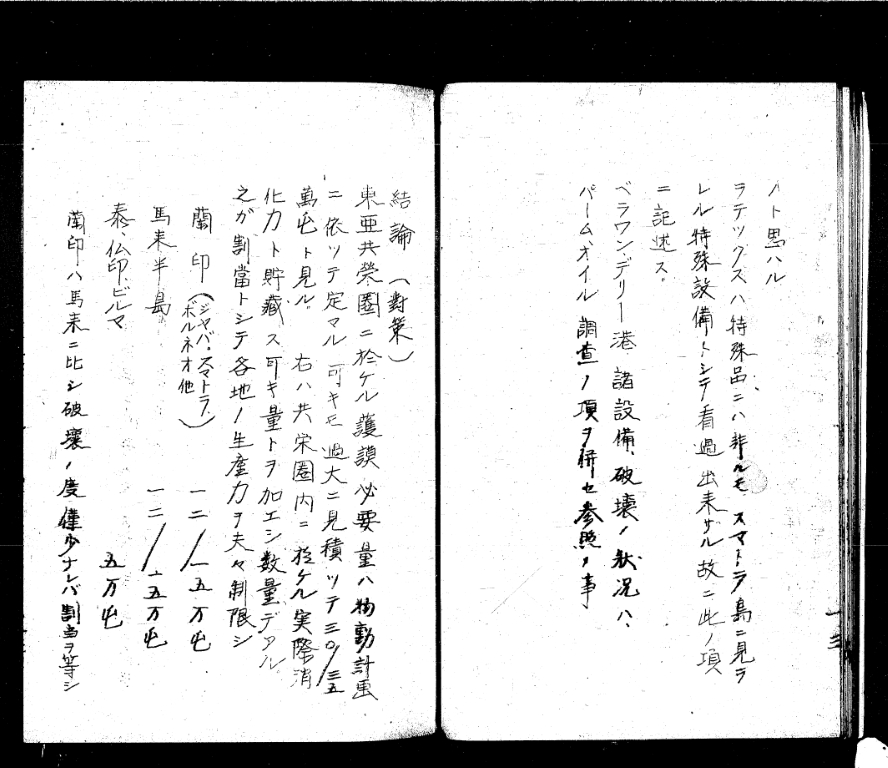 ノト思ハル
ラテックスハ特殊品ニハ非ルモ、スマトラ島ニ見ラ
レル特殊設備トシテ看過出来ザル故ニ此ノ項
ニ記述ス。
ベラワンデリー港諸設備、破壊ノ状況ハ、
パームオイル調査ノ項ヲ併セ参照ノ事
一三
結論(対策)
東亜共榮圏ニ於ケル護謨必要量ハ物動計画
ニ依ツテ定マル可キモ過大ニ見積ツテ三〇/三五
萬屯ト見ル。右ハ共栄圏内ニ於ケル実際消
化力ト貯蔵ス可キ量トヲ加エシ数量デアル
之が割當トシテ各地ノ生産力ヲ夫々制限シ
蘭印(ジヤバ・スマトラ、ボルネオ他) 一二/一五万屯
馬来半島 一二/一五万屯
泰、仏印、ビルマ 五万屯
蘭印ハ馬来ニ比シ破壊ノ度僅少ナレバ割当ヲ等シ